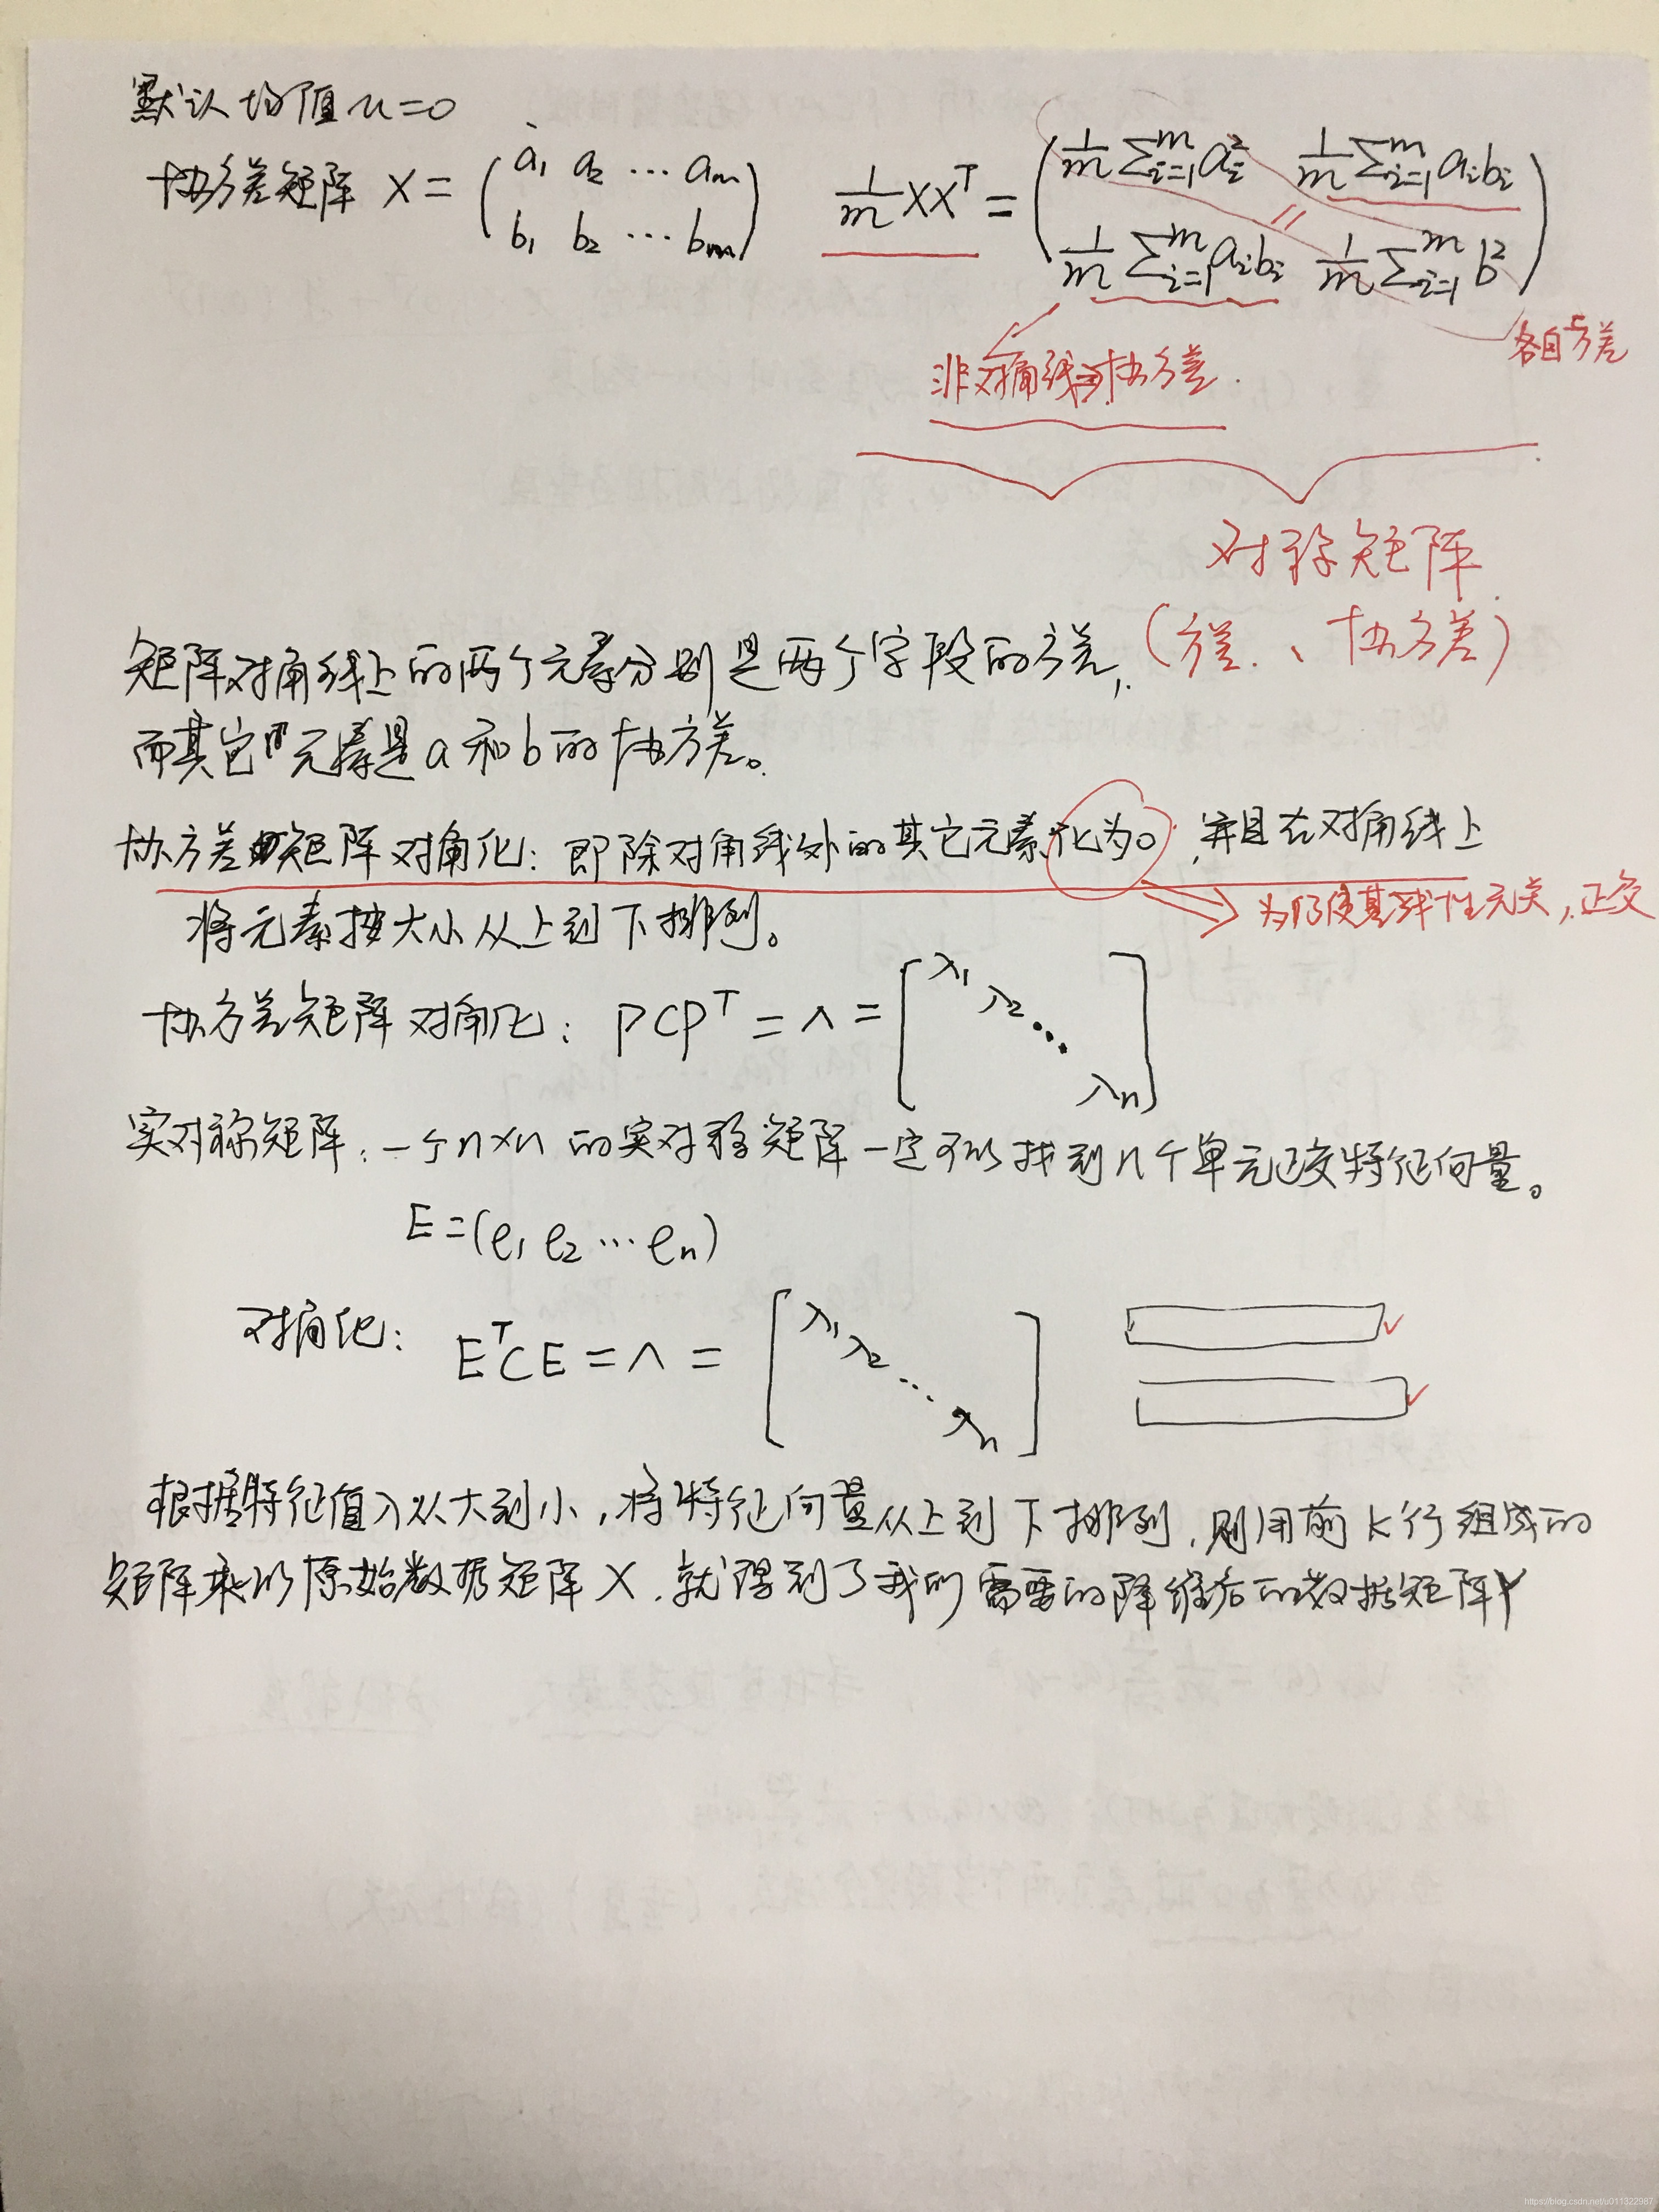 默认均值 u=0
协方差矩阵 X = ( a₁ a₂ ⋯ aₘ
b₁ b₂ ⋯ bₘ )
1/m XXᵀ = ( 1/m ∑ᵢ₌₁ᵐ aᵢ² 1/m ∑ᵢ₌₁ᵐ aᵢbᵢ
1/m ∑ᵢ₌₁ᵐ aᵢbᵢ 1/m ∑ᵢ₌₁ᵐ b² )
各自方差
非对角线为协方差.
对称矩阵
(方差、协方差)
矩阵对角线上的两个元素分别是两个字段的方差,
而其它元素是a和b的协方差。
协方差矩阵对角化: 即除对角线外的其它元素化为0, 并且在对角线上
为了使其线性无关,正交
将元素按大小从上到下排列。
协方差矩阵对角化: PCPᵀ = Λ = [ λ₁ λ₂ ⋱ λn ]
实对称矩阵: 一个n×n 的实对称矩阵一定可以找到n个单元正交特征向量。
E=(e₁ e₂ ⋯ en)
对角化: EᵀCE = Λ = [ λ₁ λ₂ ⋱ λn ]
根据特征值λ从大到小,将特征向量从上到下排列,则用前K行组成的
矩阵乘以原始数据矩阵X,就得到了我们需要的降维后的数据矩阵Y
https://blog.csdn.net/u011322987